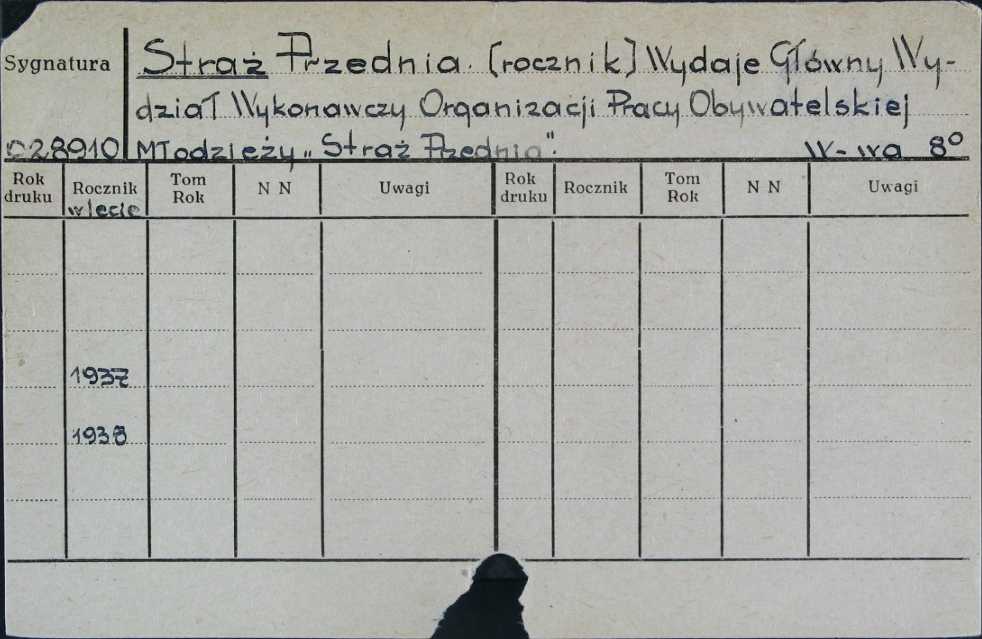 Sygnatura
Straż Przednia. [rocznik] Wydaje Główny Wy-
dział Wykonawczy Organizacji Pracy Obywatelskiej
C28910 Młodzieży „Straż Przednia". W-wa 8°
Rok druku Rocznik w lecie Tom Rok N N Uwagi Rok druku Rocznik Tom Rok N N Uwagi
1937
1938